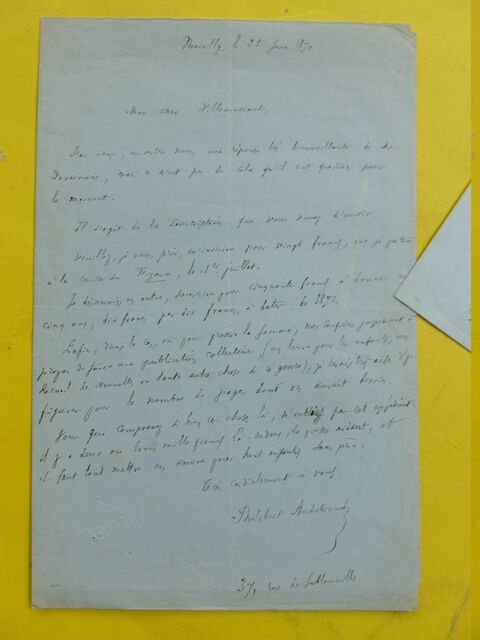 Neuilly, le 25 Juin 1870
Mon cher Villemessant,
J'ai reçu, en votre nom, une réponse très bienveillante de M.
Duvernois, mais ce n'est pas de cela qu'il est question pour
le moment.
Il s'agit de la souscription que vous venez d'ouvrir.
Veuillez, je vous prie, m'inscrire pour vingt francs, que je porterai
à la caisse du Figaro, le 1er juillet.
Je désirerais, en outre, souscrire pour cinquante francs à donner en
cinq ans, dix francs par dix francs, à dater de 1871.
Enfin, dans le cas, où pour grossir la somme, mes confrères jugeraient à
propos de faire une publication collective, (un livre pour les enfants, un
recueil de nouvelles ou toute autre chose de ce genre), je tiendrais à y
figurer pour le nombre de pages dont on aurait besoin.
Vous qui comprenez si bien ces choses-là, n'
il y a deux ou trois mille francs là-dedans, et
il faut tout mettre en œuvre pour huit enfants sans père.
Très cordialement à vous.
Philibert Audebrand
37, rue de Sablonville.